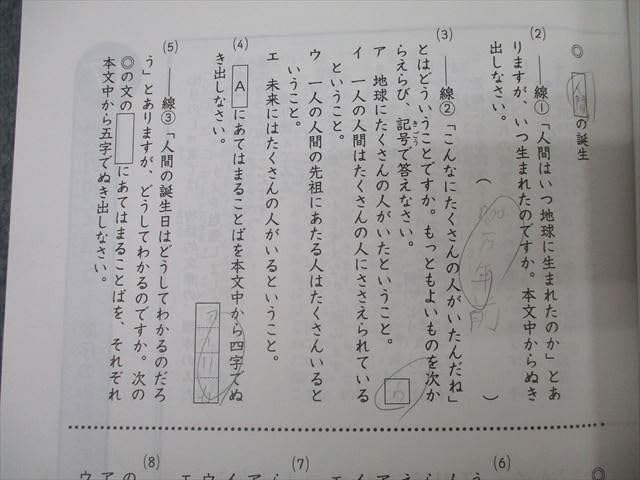 ◎ 人間の誕生
(2) ――線①「人間はいつ地球に生まれたのか」とあ
りますが、いつ生まれたのですか。本文中からぬき
出しなさい。
(　万年前　)
(3) ――線②「こんなにたくさんの人がいたんだね」
とはどういうことですか。もっともよいものを次か
らえらび、記号で答えなさい。
きごう
ア 地球にたくさんの人がいたということ。
イ 一人の人間はたくさんの人にささえられている
ということ。
ウ 一人の人間の先祖にあたる人はたくさんいると
いうこと。
エ 未来にはたくさんの人がいるということ。
ウ
(4) Aにあてはまることばを本文中から四字でぬ
き出しなさい。
(5) ――線③「人間の誕生日はどうしてわかるのだろ
う」とありますが、どうしてわかるのですか。次の
◎の文の　にあてはまることばを、それぞれ
本文中から五字でぬき出しなさい。
(6)
(7)
(8)